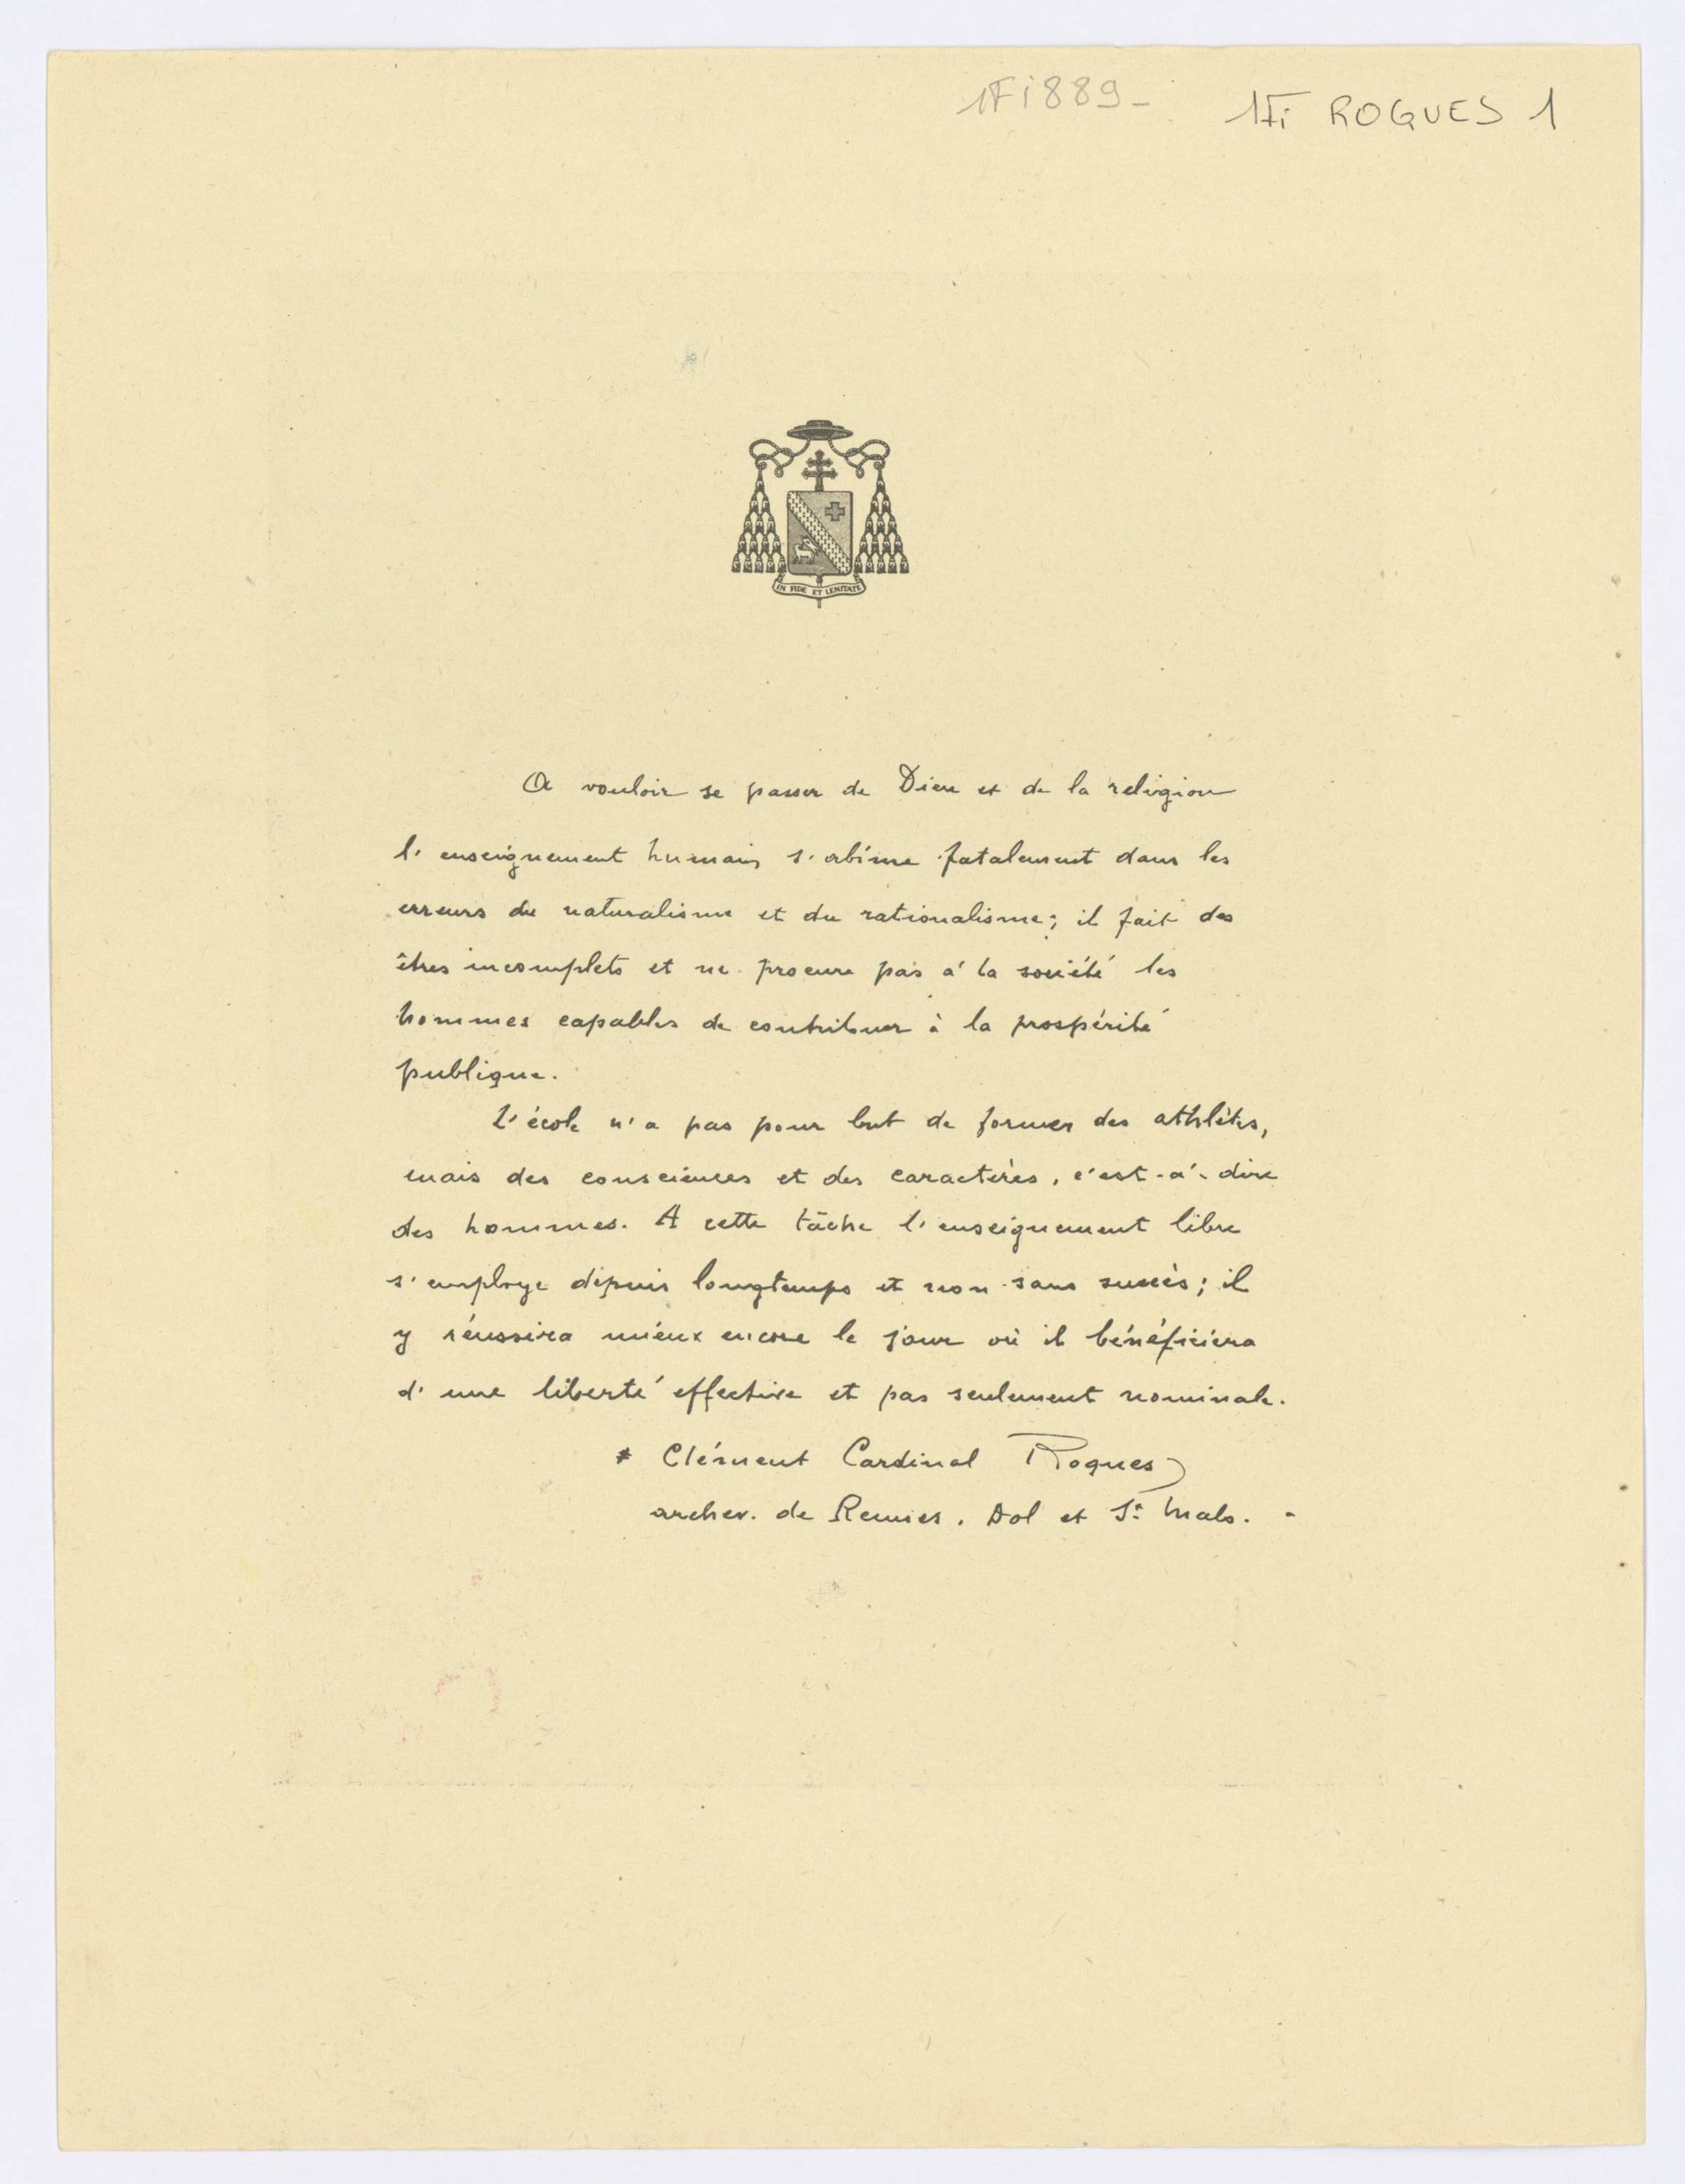 1Fi889-
1Fi ROQUES 1
IN FIDE ET LENITATE
A vouloir se passer de Dieu et de la religion
l'enseignement humain s'abîme fatalement dans les
erreurs du naturalisme et du rationalisme; il fait des
êtres incomplets et ne procure pas à la société les
hommes capables de contribuer à la prospérité
publique.
L'école n'a pas pour but de former des athlètes,
mais des consciences et des caractères, c'est-à-dire
des hommes. A cette tâche l'enseignement libre
s'employe depuis longtemps et non sans succès; il
y réussira mieux encore le jour où il bénéficiera
d'une liberté effective et pas seulement nominale.
+ Clément Cardinal Roques
archev. de Rennes, Dol et St Malo. -